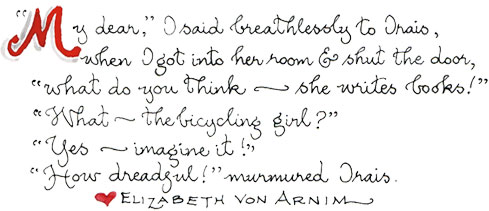 “My dear,” I said breathlessly to Irais,
when I got into her room & shut the door,
“what do you think ~ she writes books!”
“What ~ the bicycling girl?”
“Yes ~ imagine it!”
“How dreadful!” murmured Irais.
❤ ELIZABETH VON ARNIM